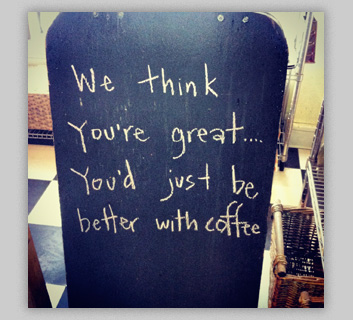 We think
You're great....
You'd just be
better with coffee